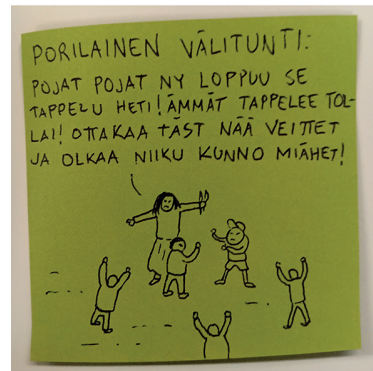 PORILAINEN VÄLITUNTI:
POJAT POJAT NY LOPPUU SE
TAPPELU HETI! ÄMMÄT TAPPELEE TOL-
LAI! OTTAKAA TÄST NÄÄ VEITTET
JA OLKAA NIIKU KUNNO MIÄHET!